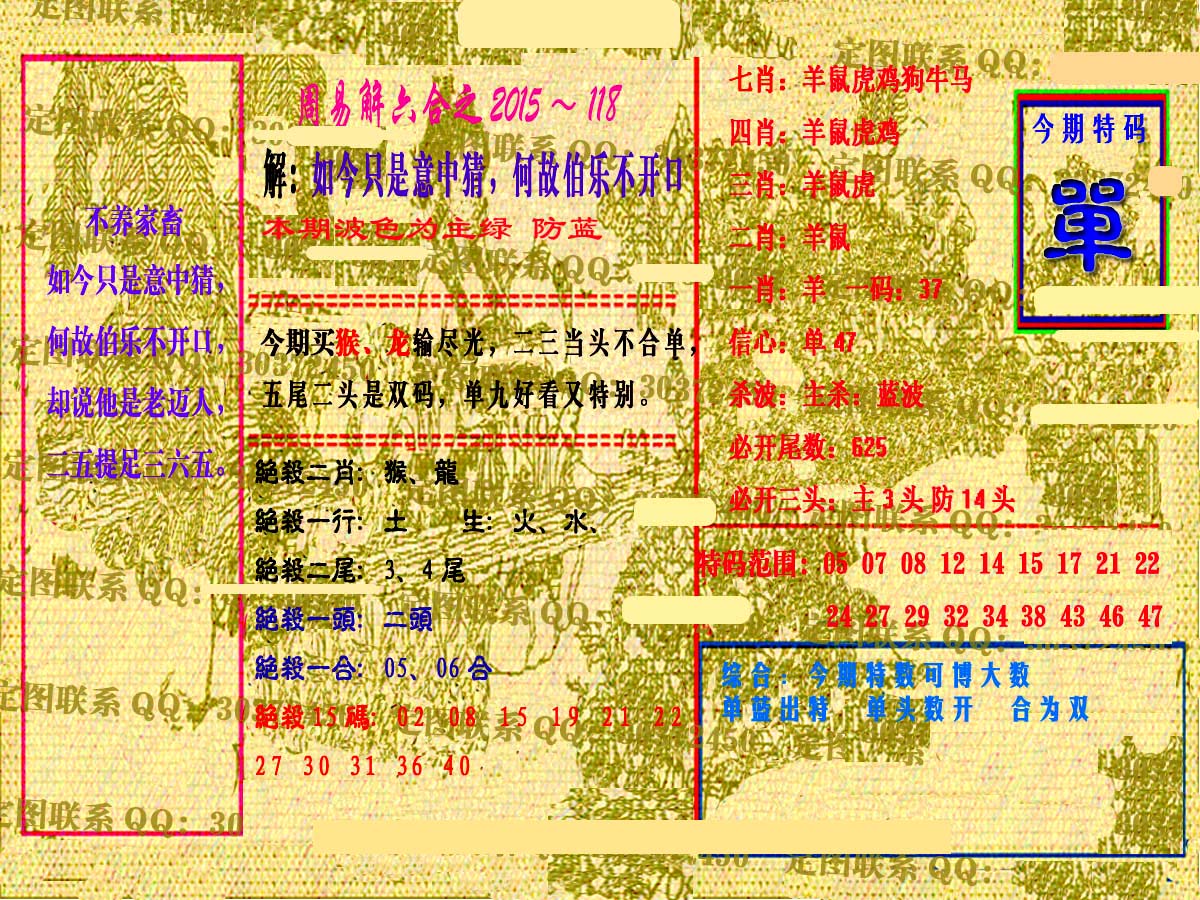 不养家畜
如今只是意中猜，
何故伯乐不开口，
却说他是老迈人，
二五提足三六五。
周易解六合之 2015～118
解：如今只是意中猜，何故伯乐不开口
本期波色为主绿 防蓝
今期买猴、龙输尽光，二三当头不合单，
五尾二头是双码，单九好看又特别。
絕殺二肖：猴、龍
絕殺一行：土 生：火、水、
絕殺二尾：3、4 尾
絕殺一頭：二頭
絕殺一合：05、06 合
絕殺 15 碼：02 08 15 19 21 22
27 30 31 36 40
七肖：羊鼠虎鸡狗牛马
四肖：羊鼠虎鸡
三肖：羊鼠虎
二肖：羊鼠
一肖：羊 一码：37
信心：单 47
杀波：主杀：蓝波
必开尾数：625
必开三头：主 3 头 防 14 头
今期特码
單
特码范围：05 07 08 12 14 15 17 21 22
24 27 29 32 34 38 43 46 47
综合：今期特数可博大数
单蓝出特 单头数开 合为双